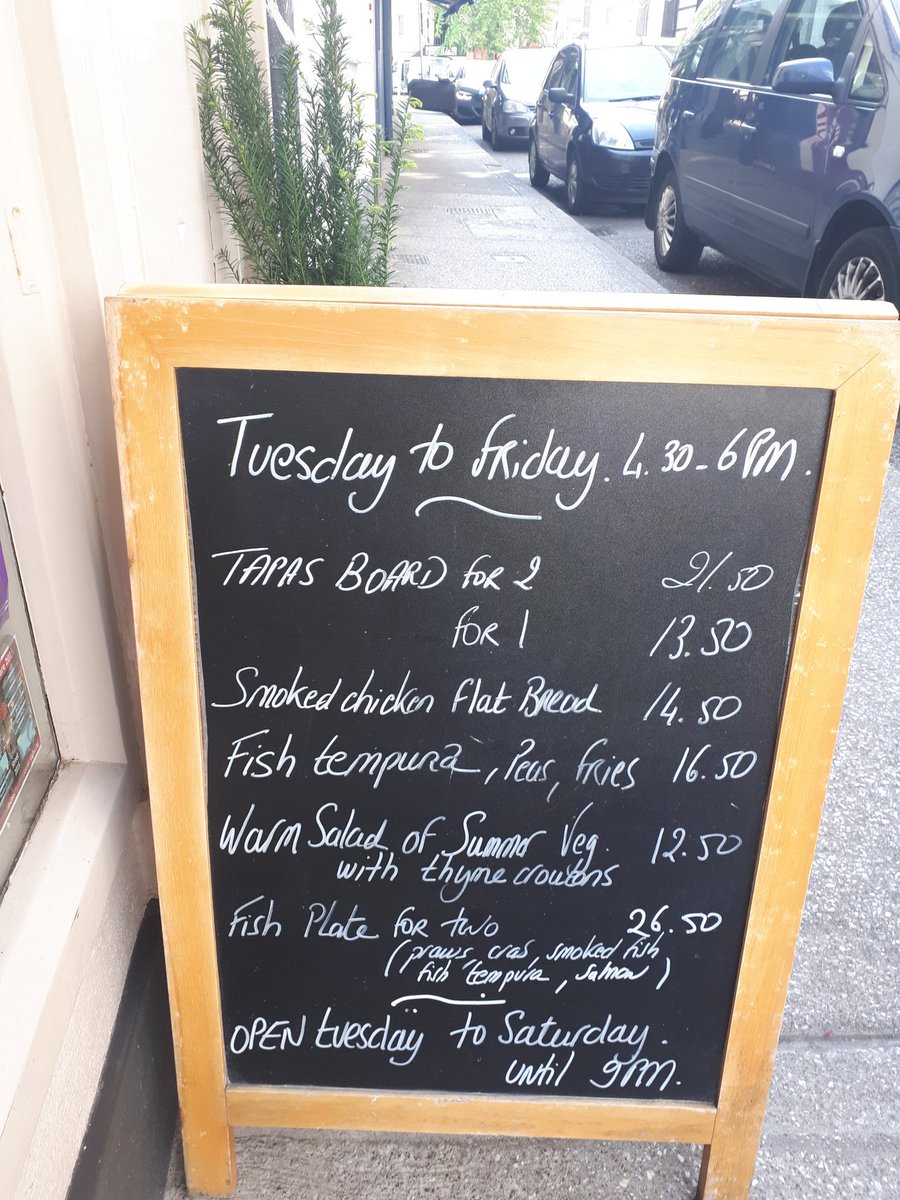 Tuesday to Friday. 4.30-6PM.
TAPAS BOARD FOR 2 21.50
FOR 1 13.50
Smoked chicken Flat Bread 14.50
Fish tempura, Peas, fries 16.50
Warm Salad of Summer Veg. 12.50
with thyme croutons
Fish Plate FOR two 26.50
(prawns, crab, smoked fish
fish tempura, salmon)
OPEN tuesday to Saturday.
until 9PM.